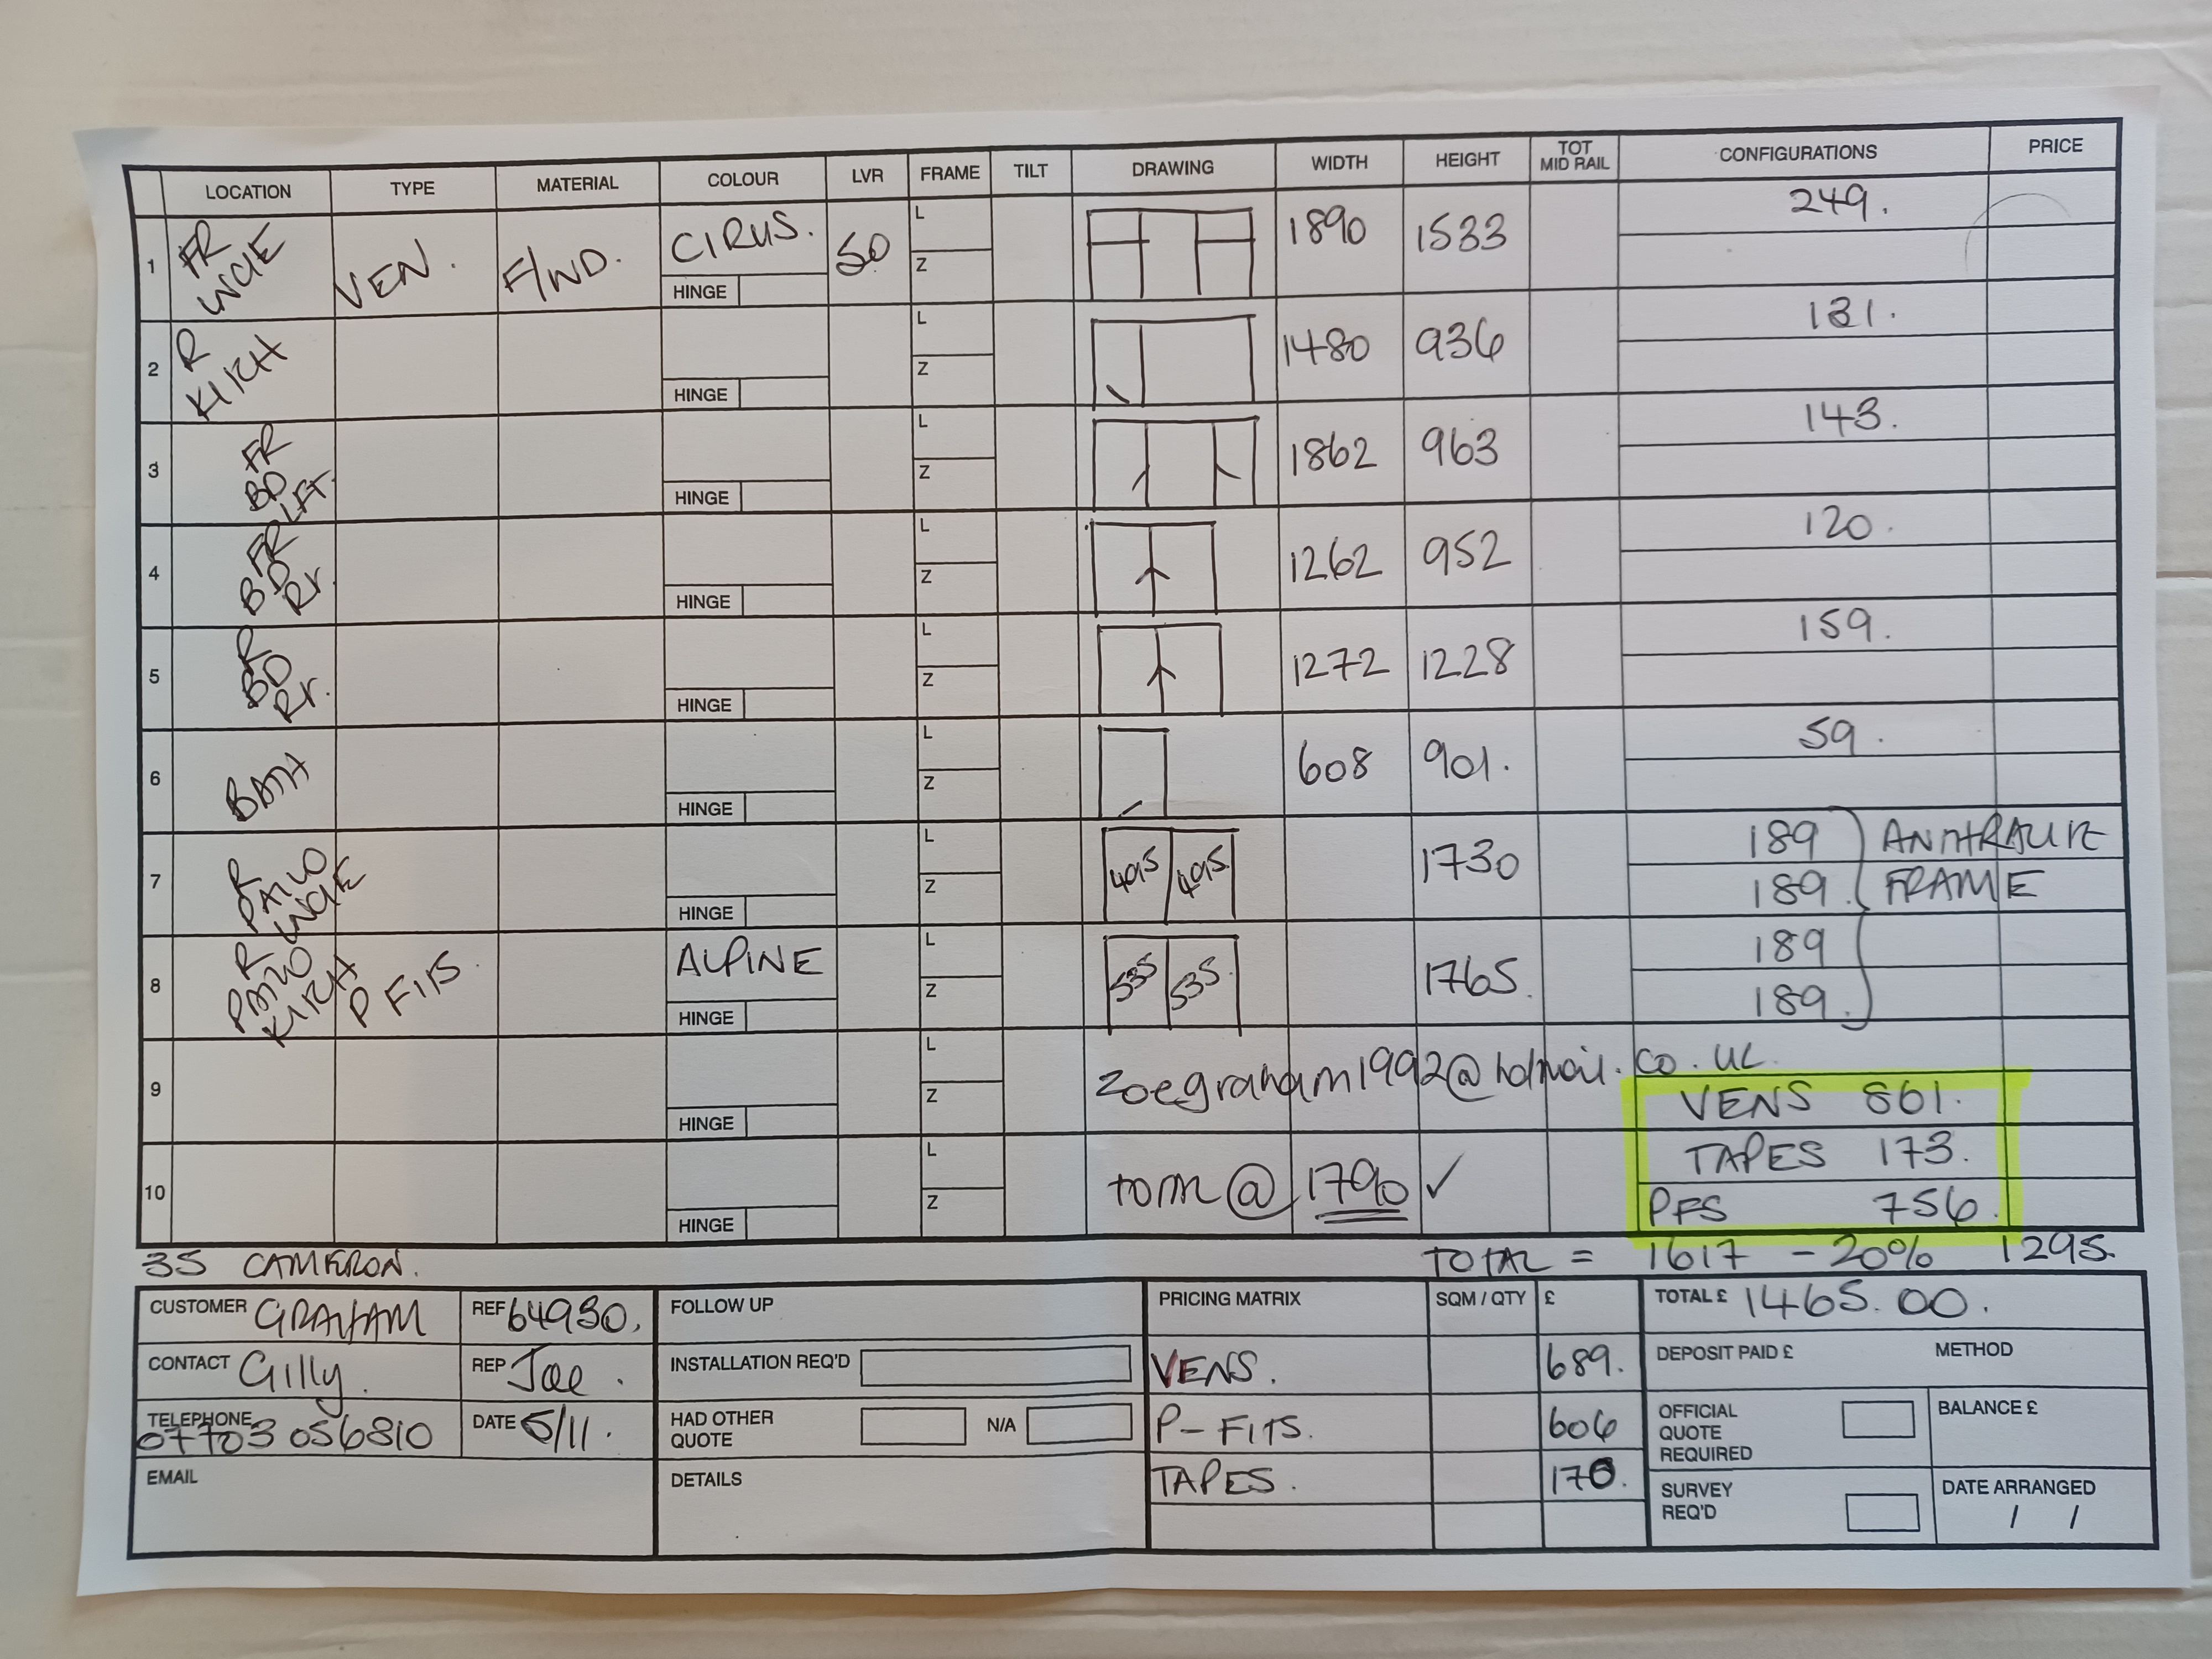 LOCATION TYPE MATERIAL COLOUR LVR FRAME TILT DRAWING WIDTH HEIGHT TOT MID RAIL CONFIGURATIONS PRICE
1 FR LNGE VEN. F/WD. CIRUS. HINGE 50 L Z 1890 1533 249.
2 R KITCH HINGE L Z 1480 936 131.
3 FR BD LFT. HINGE L Z 1862 963 143.
4 FR BD Rr. HINGE L Z 1262 952 120.
5 R BD Rr. HINGE L Z 1272 1228 159.
6 BATH HINGE L Z 608 901. 59.
7 R PATIO LNGE HINGE L Z 4095 4095 1730 189 ANTHRACITE
189. FRAME
8 R PATIO KITCH P FITS. ALPINE HINGE L Z 535 535 1765. 189
189.
9 HINGE L Z zoegraham1992@hotmail.co.uk.
VENS 861.
10 HINGE L Z tom @ 1790 ✓ TAPES 173.
PFS 756.
35 CAMERON. TOTAL = 1617 - 20% 1295.
CUSTOMER GRAHAM REF 64930.
CONTACT Gilly. REP Joe.
TELEPHONE 07703 056810 DATE 5/11.
EMAIL
FOLLOW UP
INSTALLATION REQ'D
HAD OTHER QUOTE N/A
DETAILS
PRICING MATRIX SQM / QTY £
VENS. 689.
P-FITS. 606
TAPES. 170.
TOTAL £ 1465.00.
DEPOSIT PAID £ METHOD
OFFICIAL QUOTE REQUIRED BALANCE £
SURVEY REQ'D DATE ARRANGED / /